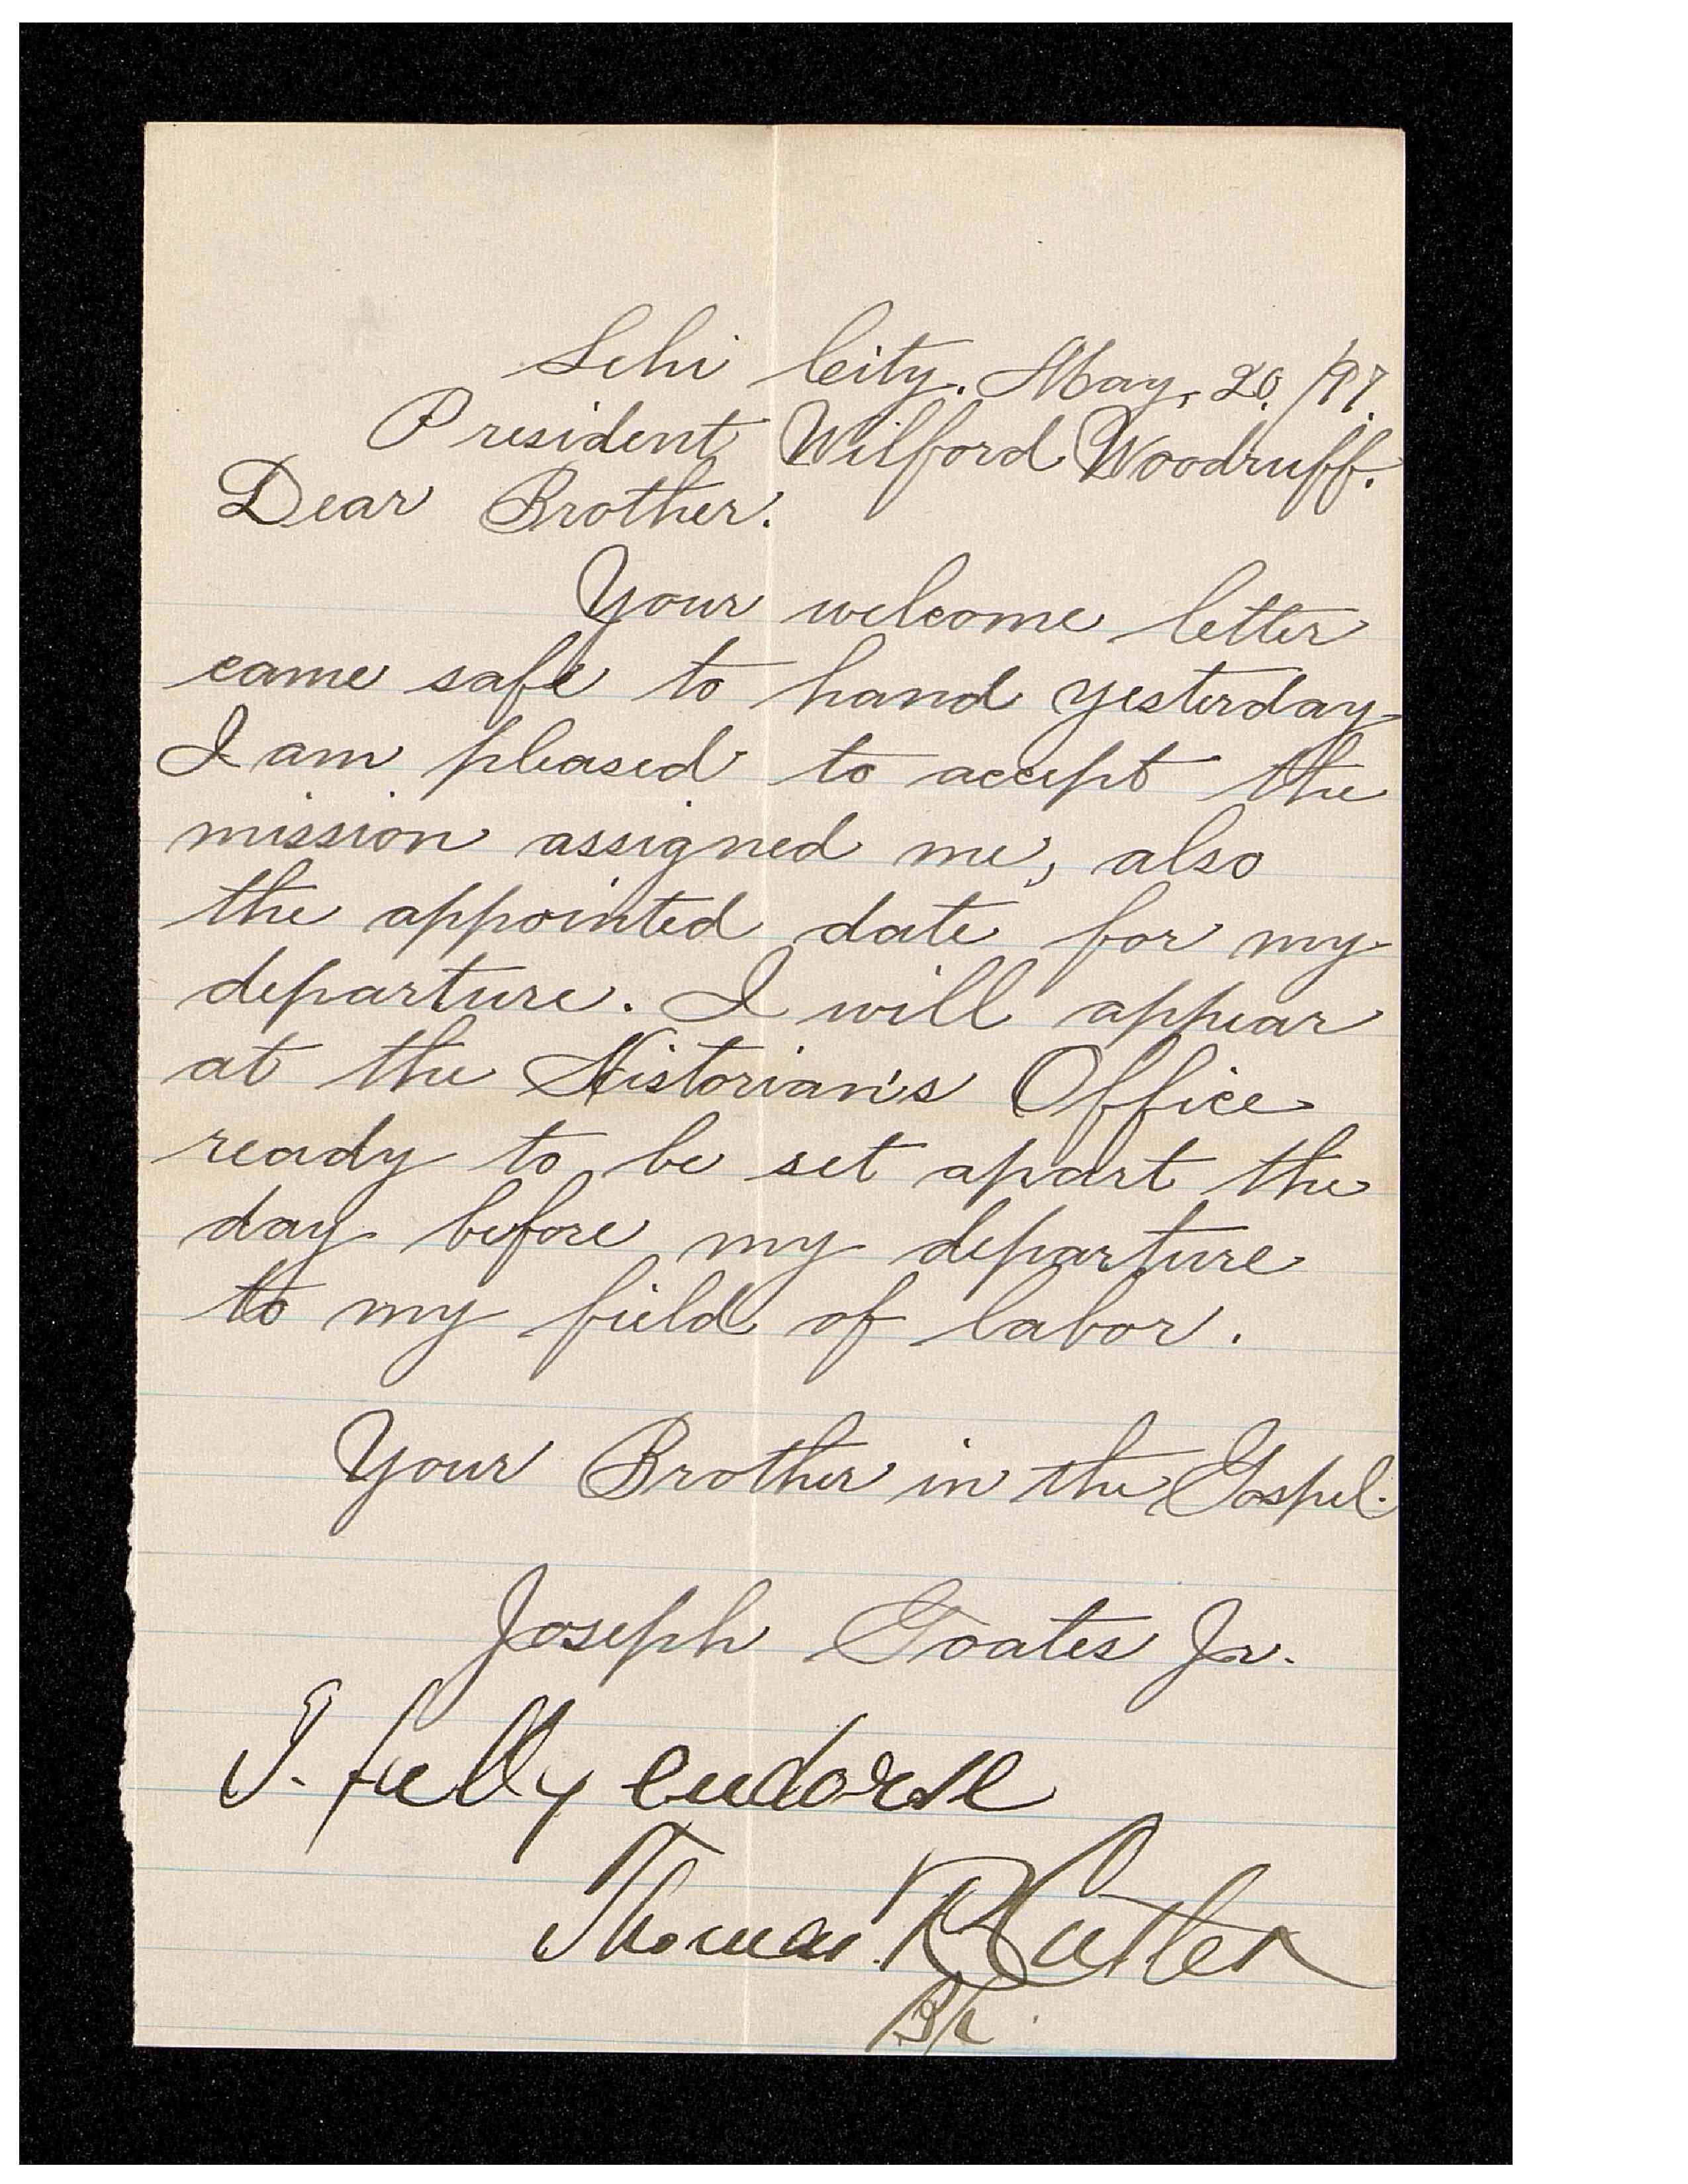 Lehi City. May, 20. /97.
President Wilford Woodruff.
Dear Brother.
Your welcome letter
came safe to hand yesterday
I am pleased to accept the
mission assigned me, also
the appointed date for my
departure. I will appear
at the Historian's Office
ready to be set apart the
day before my departure
to my field of labor.
Your Brother in the Gospel.
Joseph Goates Jr.
I fully endorse
Thomas R Cutler
Bp